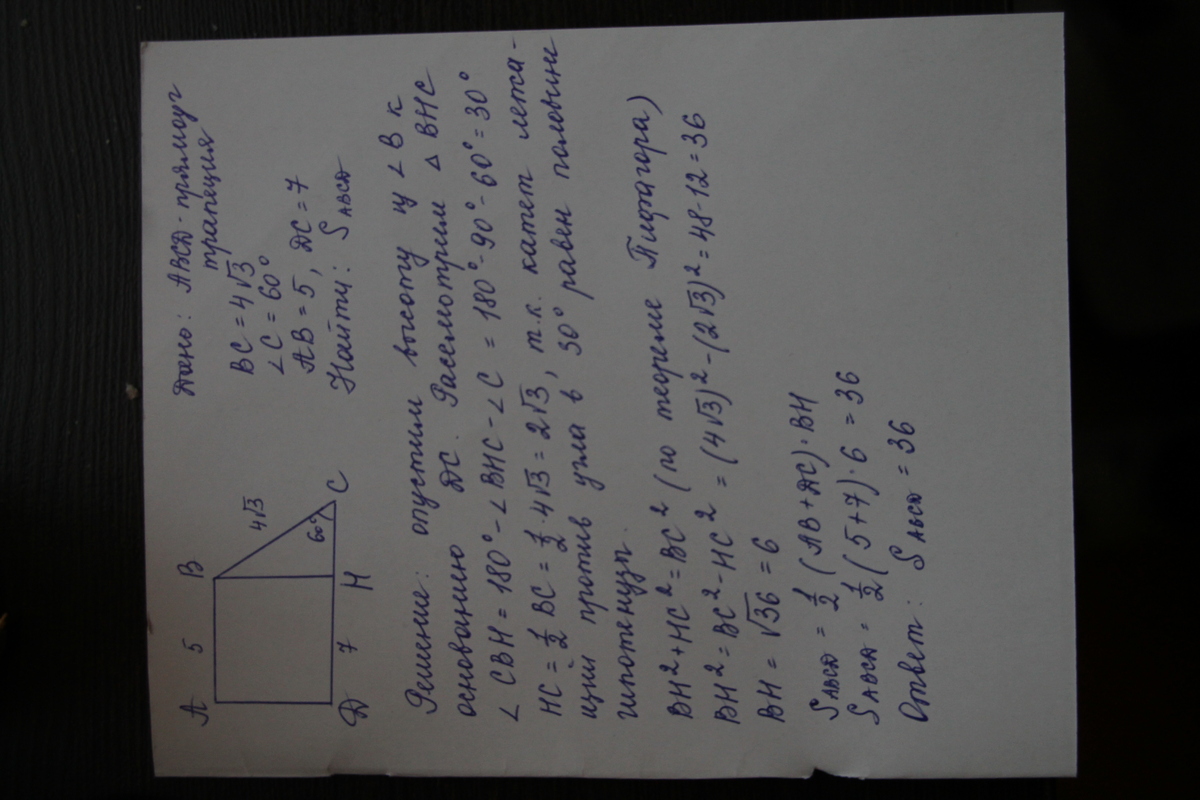 A 5 B
4√3
60°
Д 7 H C
Дано: ABCД - прямоуг
трапеция
BC = 4√3
∠C = 60°
AB = 5, ДС = 7
Найти: S ABCД
Решение: опустим высоту из ∠B к
основанию ДС. Рассмотрим △ BHC
∠ CBH = 180° - ∠ BHC - ∠ C = 180° - 90° - 60° = 30°
HC = 1/2 BC = 1/2 · 4√3 = 2√3, т.к. катет лежа-
щий против угла в 30° равен половине
гипотенузы.
BH² + HC² = BC² (по теореме Пифагора)
BH² = BC² - HC² = (4√3)² - (2√3)² = 48 - 12 = 36
BH = √36 = 6
S ABCД = 1/2 (AB + ДС) · BH
S ABCД = 1/2 (5 + 7) · 6 = 36
Ответ: S ABCД = 36